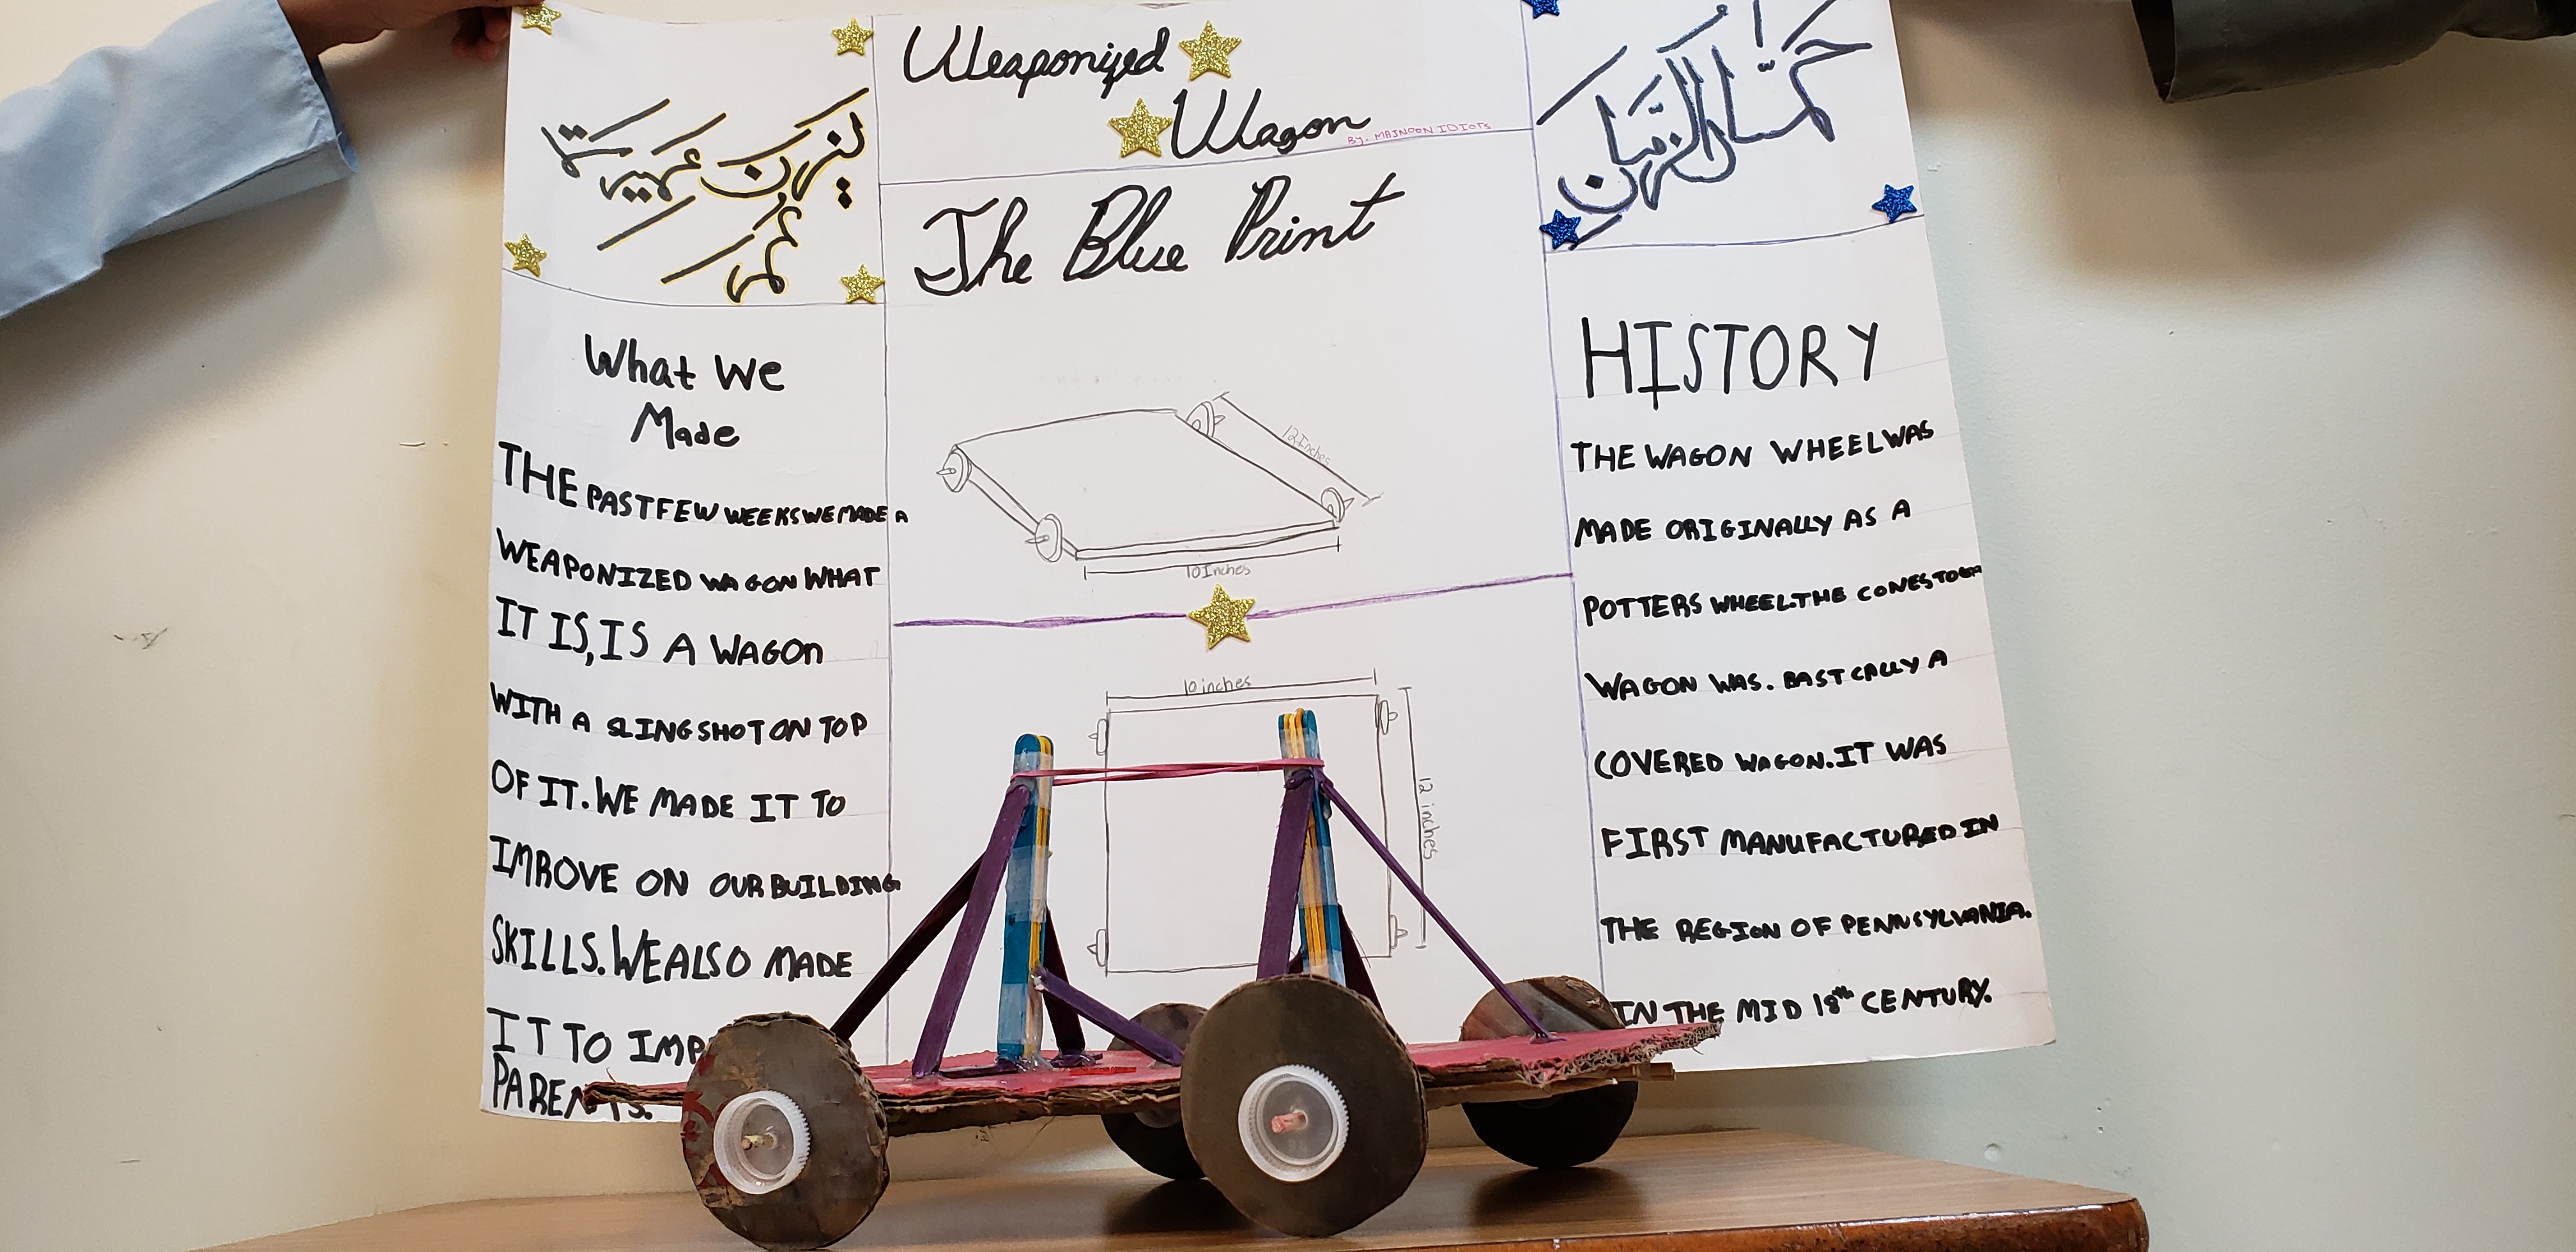 Weaponized
Wagon
BY. MAJNOON IDIOTS
What We
Made
THE PAST FEW WEEKS WE MADE A
WEAPONIZED WAGON WHAT
IT IS, IS A WAGON
WITH A SLING SHOT ON TOP
OF IT. WE MADE IT TO
IMROVE ON OUR BUILDING
SKILLS. WE ALSO MADE
IT TO IMP
PARENTS.
The Blue Print
12 Inches
10 Inches
10 inches
12 inches
HISTORY
THE WAGON WHEEL WAS
MADE ORIGINALLY AS A
POTTERS WHEEL. THE CONESTOGA
WAGON WAS. BASICALLY A
COVERED WAGON. IT WAS
FIRST MANUFACTURED IN
THE REGION OF PENNSYLVANIA.
IN THE MID 18th CENTURY.